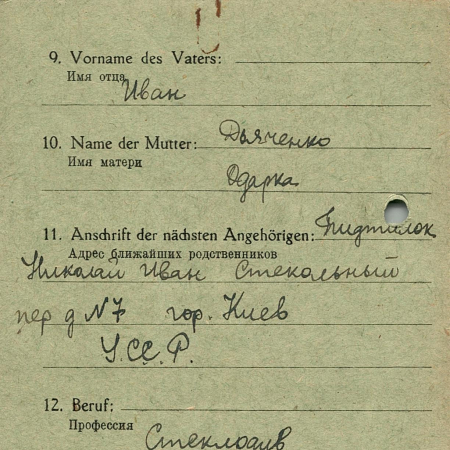 9. Vorname des Vaters:
Имя отца
Иван
10. Name der Mutter: Дьяченко
Имя матери
Одарка
11. Anschrift der nächsten Angehörigen:
Адрес ближайших родственников
Николай Иван Стекольный
пер д N 7 гор. Киев
У.С.С.Р.
12. Beruf:
Профессия